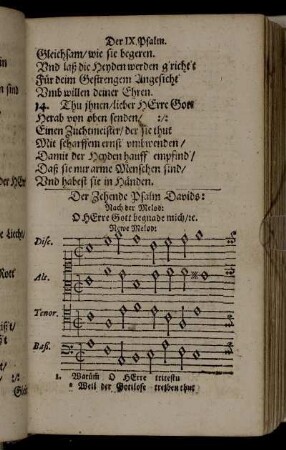 Der IX. Psalm.
Gleichsam/ wie sie begeren.
Vnd laß die Heyden werden g'richt't
Für deim Gestrengem Angesicht
Vmb willen deiner Ehren.
14. Thu jhnen/ lieber HErre Gott
Herab von oben senden/ :/:
Einen Zuchtmeister/ der sie thut
Mit scharffem ernst vmbwenden/
Damit der Heyden hauff empfind/
Daß sie nur arme Menschen sind/
Vnd habest sie in Händen.
Der Zehende Psalm Davids:
Nach der Melod:
O HErre Gott begnade mich/ ꝛc.
Newe Melod:
Disc.
Alt.
Tenor.
Baß.
1. Warůmb O HErre
* Weil der Gottlose treiben thut